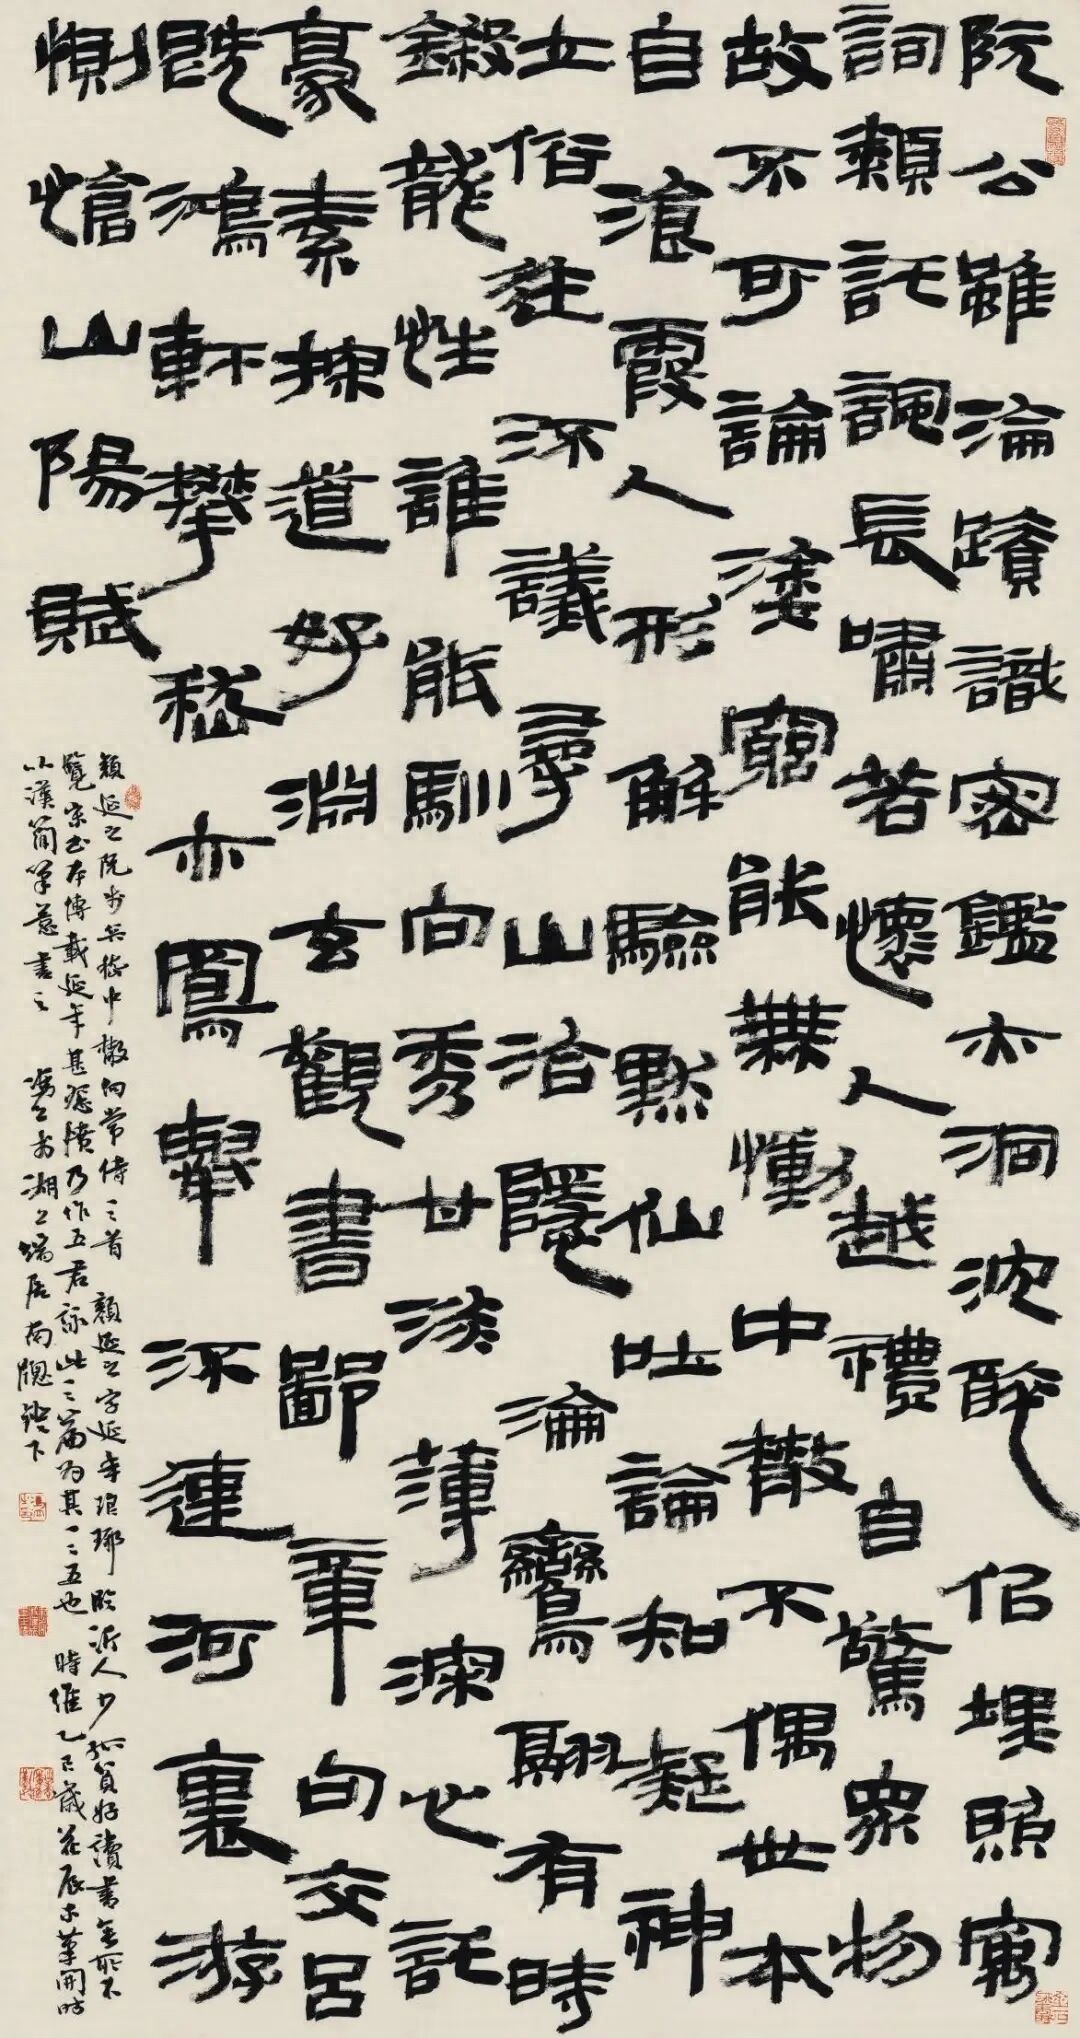 阮公雖淪蹟識密鑑亦洞沈醉佀埋照寓
詞類託諷長嘯若懷人越禮自驚眾物
故不可論塗窮能無慟中散不偶世本
自湌霞人形解驗默仙吐論知凝神
立俗迕流議尋山洽隱淪鸞翮有時
鎩龍性誰能馴向秀甘淡薄深心託
豪素探道好淵玄觀書鄙章句交呂
既鴻軒攀嵇亦鳳舉流連河裏游
惻愴山陽賦
顏延之阮步兵嵇中散向常侍三首 顏延之字延年琅琊臨沂人少孤貧好讀書無所不
覽宋書本傳載延年甚怨憤乃作五君詠此三篇為其一二五也 時維乙巳歲花辰木筆開時
以漢簡筆意書之 於湖上端居南牕鐙下